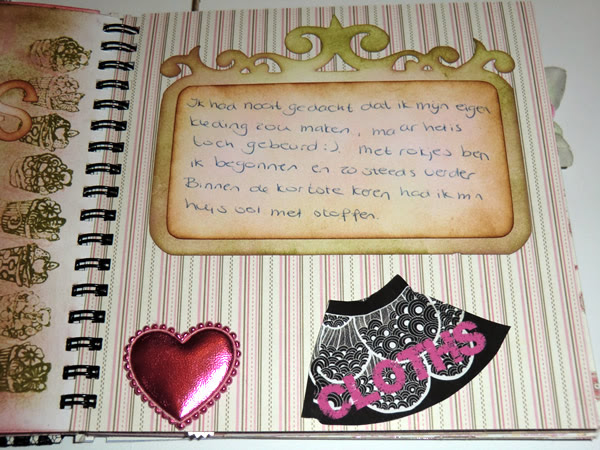 Ik had nooit gedacht dat ik mijn eigen
kleding zou maken, maar het is
toch gebeurd :). Met rokjes ben
ik begonnen en zo steeds verder
Binnen de kortste keren had ik m'n
huis vol met stoffen.
CLOTHS